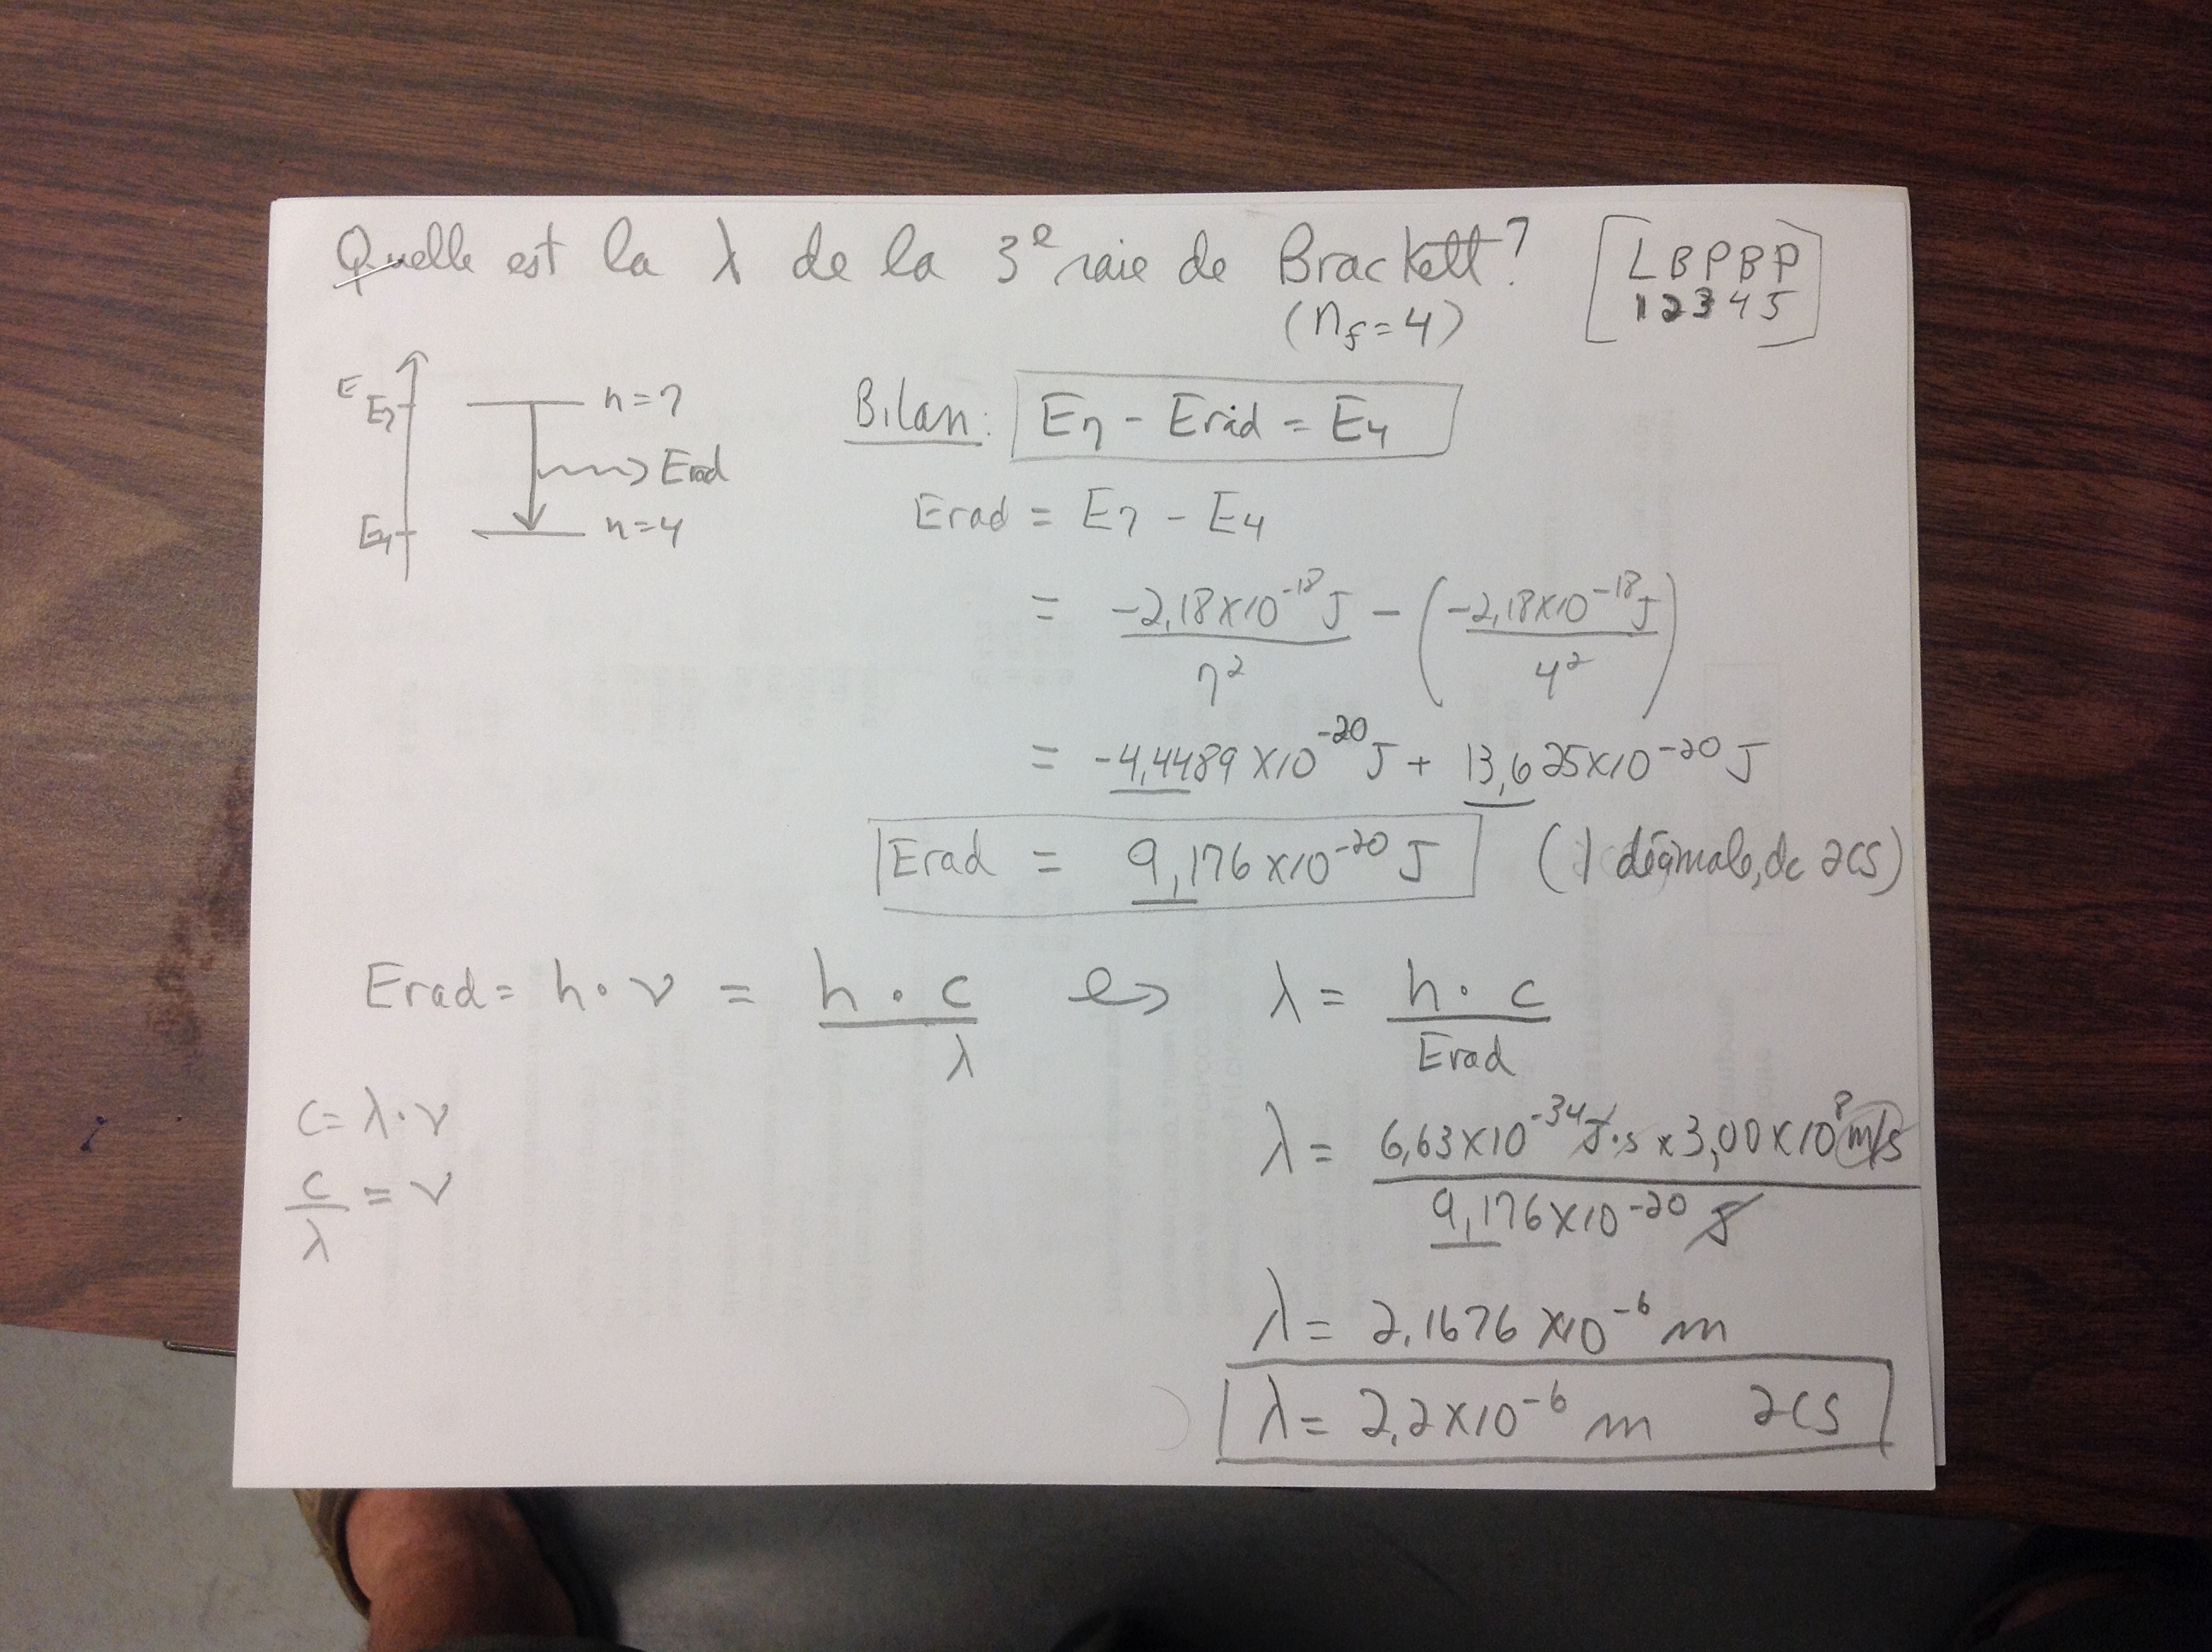 Quelle est la λ de la 3e raie de Brackett?
(nf = 4)
[L B P B P
1 2 3 4 5]
E
E7
n=7
Erad
E4
n=4
Bilan: E7 - Erad = E4
Erad = E7 - E4
= -2,18×10^-18 J / 7² - (-2,18×10^-18 J / 4²)
= -4,4489 ×10^-20 J + 13,625×10^-20 J
Erad = 9,176 ×10^-20 J (1 décimale, dc 2CS)
Erad = h·ν = h·c / λ ↪ λ = h·c / Erad
c = λ·ν
c / λ = ν
λ = 6,63×10^-34 J·s × 3,00×10^8 m/s / 9,176×10^-20 J
λ = 2,1676 ×10^-6 m
λ = 2,2×10^-6 m 2CS